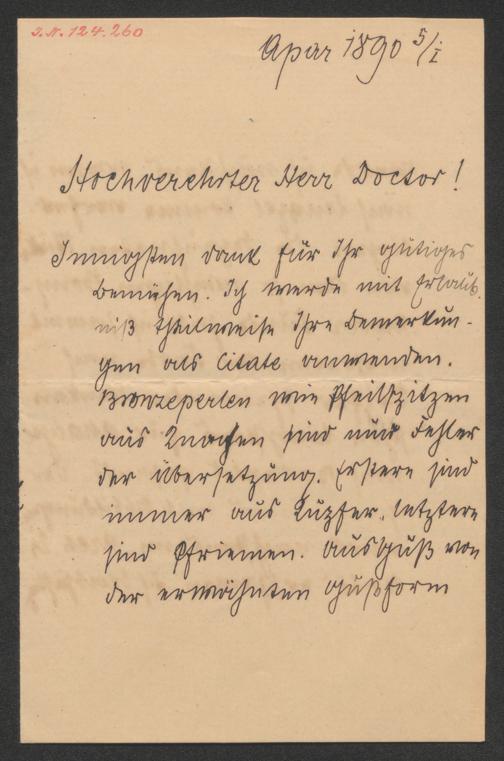 J.N. 124.260
Apar 1890 5/I
Hochverehrter Herr Doctor!
Innigsten dank für Ihr gütiges
bemühen. Ich werde mit Erlaub-
niß theilweise Ihre bemerkun-
gen als Citate anwenden.
Bronzeperlen wie Pfeilspitzen
aus Knochen sind nur Fehler
der übersetzung. Erstere sind
immer aus Kupfer, letztere
sind Pfriemen. Ausguß von
der erwähnten gußform